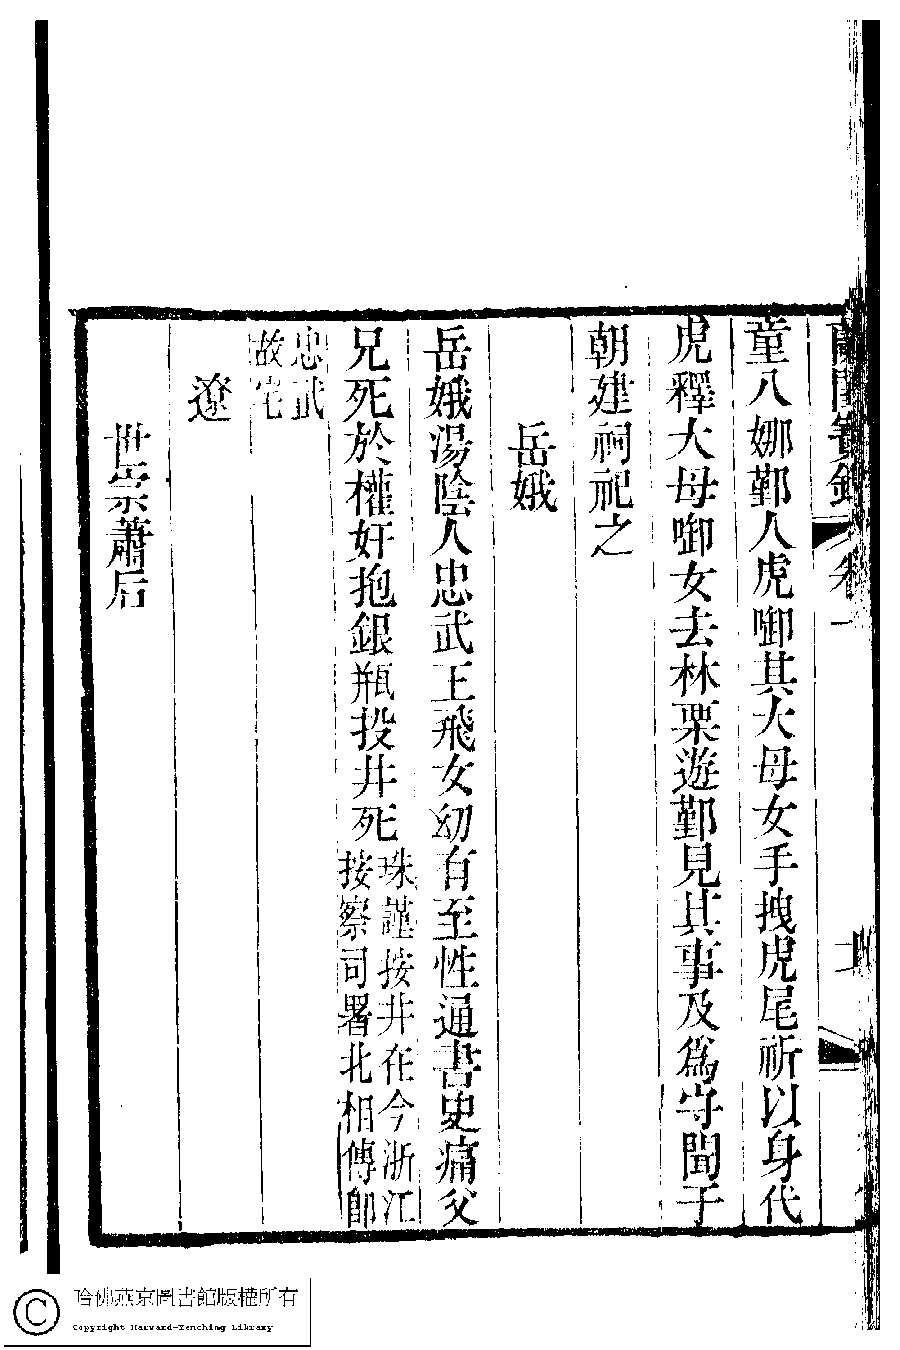 蘭閨寶錄 卷一
童八娜鄞人虎啣其大母女手拽虎尾祈以身代
虎釋大母啣女去林栗遊鄞見其事及爲守聞于
朝建祠祀之
岳娥
岳娥湯陰人忠武王飛女幼有至性通書史痛父
兄死於權奸抱銀瓶投井死
珠謹按井在今浙江
按察司署北相傳卽
忠武
故宅
遼
世宗蕭后
哈佛燕京圖書館版權所有
Copyright Harvard-Yenching Library